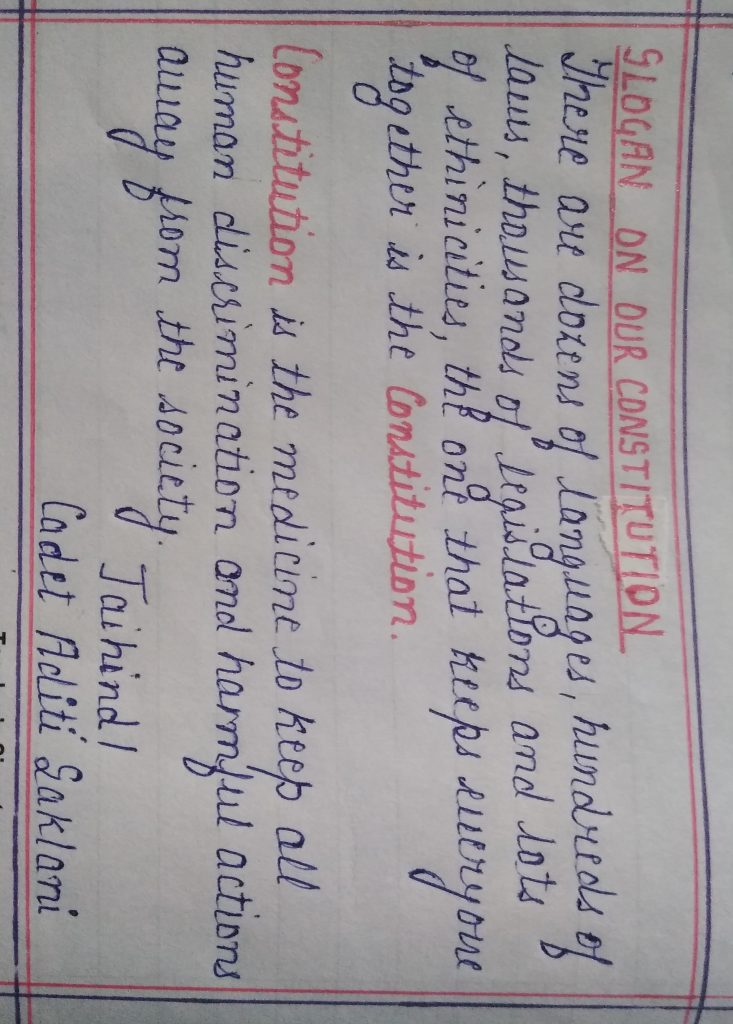 SLOGAN ON OUR CONSTITUTION
There are dozens of languages, hundreds of
laws, thousands of legislations and lots
of ethinicities, the one that keeps everyone
together is the Constitution.
Constitution is the medicine to keep all
human discrimination and harmful actions
away from the society.
Jaihind!
Cadet Aditi Saklani